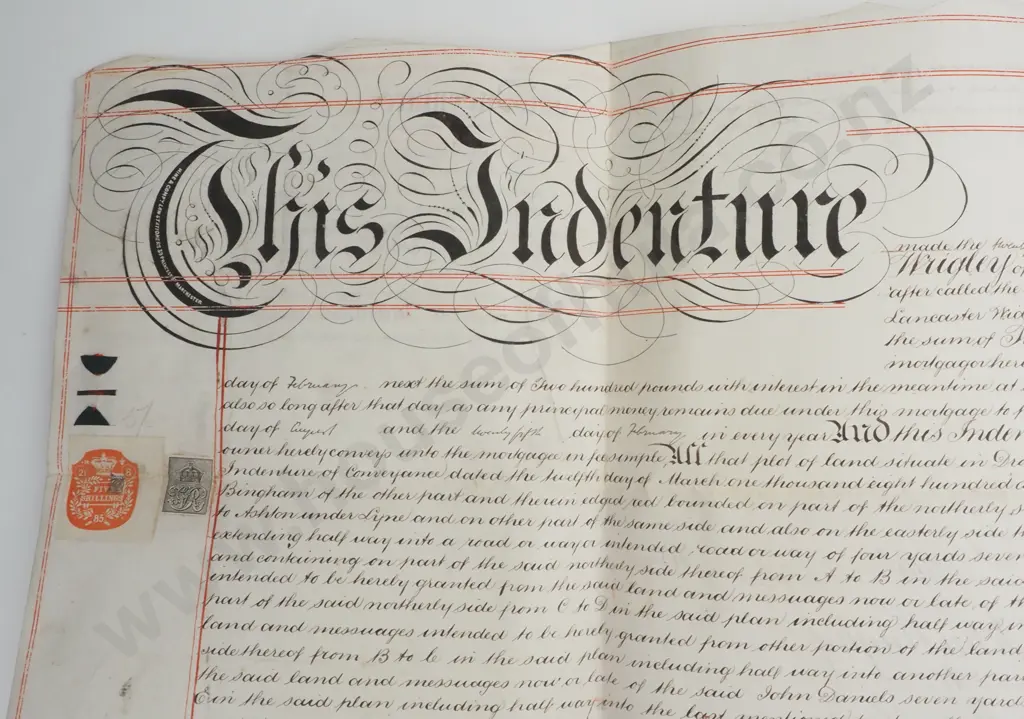 This Indenture
made the
Wrigley
after called the
Lancaster
the sum of
mortgagor here
day of February next the sum of Two hundred pounds with interest in the meantime at
also so long after that day as any principal money remains due under this mortgage to
day of August and the twenty fifth day of February in every year And this Inden
owner hereby conveys unto the mortgagee in fee simple All that plot of land situate in Dro
Indenture of Conveyance dated the twelfth day of March one thousand eight hundred a
Bingham of the other part and therein edged red bounded on part of the northerly s
to Ashton under Lyne and on other part of the same side and also on the easterly side
extending half way into a road or way or intended road or way of four yards seven
and containing on part of the said northerly side thereof from A to B in the said
intended to be hereby granted from the said land and messuages now or late of th
part of the said northerly side from C to D in the said plan including half way in
land and messuages intended to be hereby granted from other portion of the land
side thereof from B to C in the said plan including half way into another par
the said land and messuages now or late of the said John Daniels seven yard
E in the said plan including half way into the last mentioned
FIVE
SHILLINGS